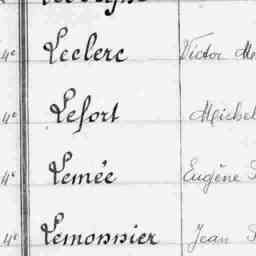 4e Leclerc Victor
4e Lefort Michel
4e Lemée Eugène
4e Lemonnier Jean